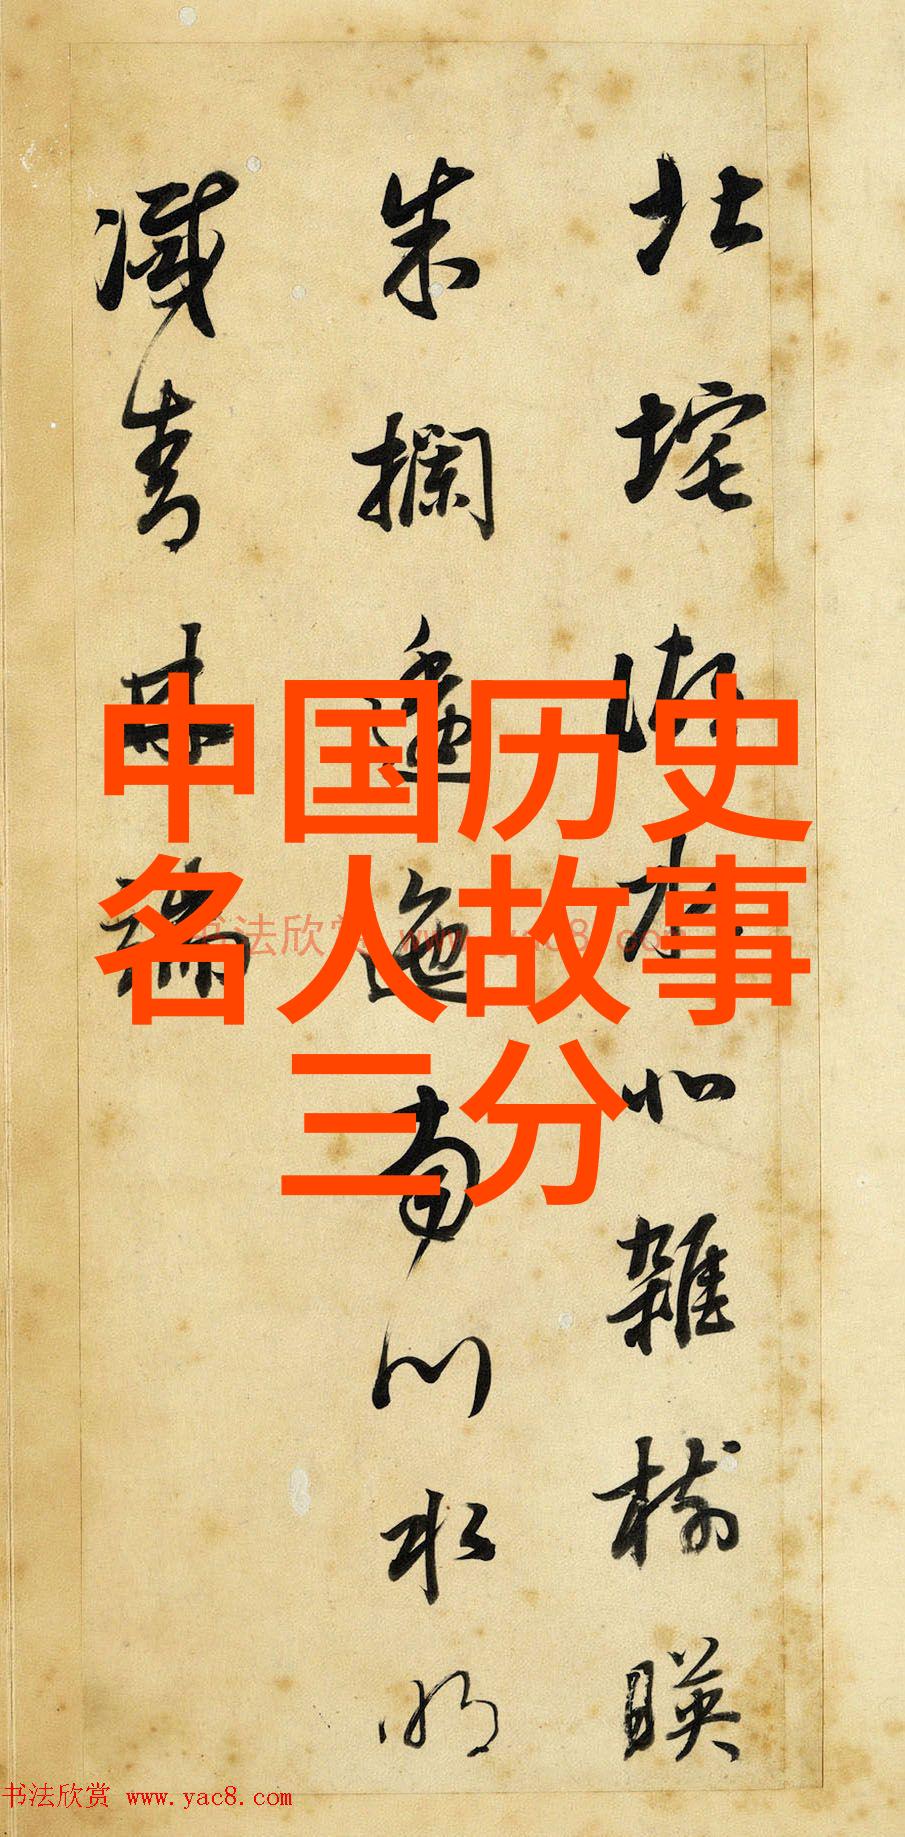 中国历史
名人故事
三分
北垞湖水北雜樹映
朱欄逶迤南川水明
滅青林端
书法欣赏 www.yac8.com
书法欣赏 www.yac8.com